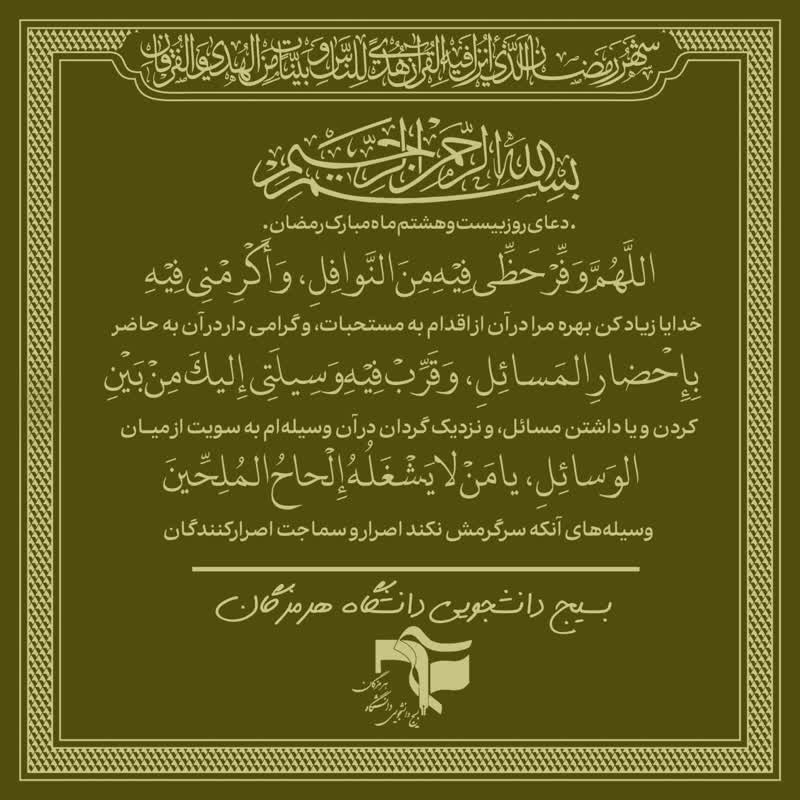 شَهْرُ رَمَضَانَ الَّذِي أُنْزِلَ فِيهِ الْقُرْآنُ هُدًى لِلنَّاسِ وَبَيِّنَاتٍ مِنَ الْهُدَى وَالْفُرْقَانِ
بسم الله الرحمن الرحيم
.دعای روز بیست و هشتم ماه مبارک رمضان.
اللَّهُمَّ وَفِّرْ حَظِّی فِیهِ مِنَ النَّوافِلِ، وَأَکْرِمْنِی فِیهِ
خدایا زیاد کن بهره مرا در آن از اقدام به مستحبات، و گرامی دار در آن به حاضر
بِإِحْضارِ المَسائِلِ، وَقَرِّبْ فِیهِ وَسِیلَتِی إِلیكَ مِنْ بَیْنِ
کردن و یا داشتن مسائل، و نزدیک گردان در آن وسیله‌ام به سویت از میـان
الوَسائِلِ، یا مَنْ لا یَشْغَلُهُ إِلْحاحُ المُلِحِّینَ
وسیله‌های آنکه سرگرمش نکند اصرار و سماجت اصرارکنندگان
بسیج دانشجویی دانشگاه هرمزگان
هرمزگان
دانشگاه
بسیج دانشجویی